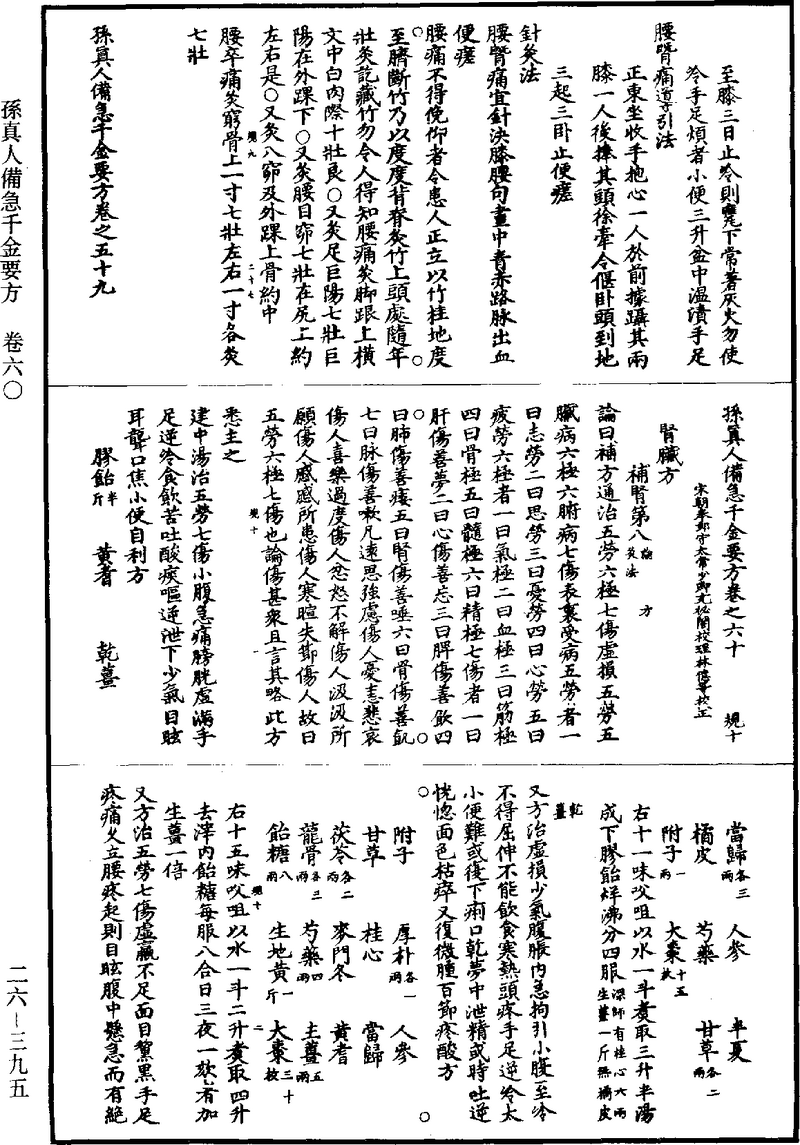 孫真人備急千金要方 卷六〇
二六-三九五
至膝三日止冷則甕下常著灰火勿使
冷手足煩者小便三升盆中温漬手足
腰臀痛導引法
正東坐收手抱心一人於前據躡其兩
膝一人後捧其頭徐牽令偃卧頭到地
三起三卧止便瘥
針灸法
腰臀痛宜針決膝腰句畫中青赤路脉出血
便瘥
腰痛不得俛仰者令患人正立以竹柱地度
至臍斷竹乃以度度背脊灸竹上頭處隨年
壯灸訖藏竹勿令人得知腰痛灸脚跟上橫
文中白肉際十壯良○又灸足巨陽七壯巨
陽在外踝下○又灸腰目窌七壯在尻上約
左右是○又灸八窌及外踝上骨約中
規九 二十七
腰卒痛灸窮骨上一寸七壯左右一寸各灸
七壯
孫真人備急千金要方卷之五十九
孫真人備急千金要方卷之六十 規十
宋朝奉郎守太常少卿充秘閣校理林億等校正
腎臟方
補腎第八 論 方 灸法
論曰補方通治五勞六極七傷虛損五勞五
臟病六極六腑病七傷表裏受病五勞者一
曰志勞二曰思勞三曰憂勞四曰心勞五曰
疲勞六極者一曰氣極二曰血極三曰筋極
四曰骨極五曰髓極六曰精極七傷者一曰
肝傷善夢二曰心傷善忘三曰脾傷善飲四
曰肺傷善痿五曰腎傷善唾六曰骨傷善飢
七曰脉傷善嗽凡遠思強慮傷人憂恚悲哀
傷人喜樂過度傷人忿怒不解傷人汲汲所
願傷人慼慼所患傷人寒暄失節傷人故曰
五勞六極七傷也論傷甚衆且言其略此方
規十
悉主之
建中湯治五勞七傷小腹急痛膀胱虛滿手
足逆冷食飲苦吐酸痰嘔逆泄下少氣目眩
耳聾口焦小便自利方
膠飴半斤 黃耆 乾薑
當歸各三兩 人參 半夏
橘皮 芍藥 甘草各二兩
附子一兩 大棗十五枚
右十一味㕮咀以水一斗煑取三升半湯
成下膠飴烊沸分四服深師有桂心六兩生薑一斤無橘皮
乾薑
又方治虛損少氣腹脹內急拘引小腹至冷
不得屈伸不能飲食寒熱頭疼手足逆冷大
小便難或復下痢口乾夢中泄精或時吐逆
恍惚面色枯瘁又復微腫百節疼酸方
附子 厚朴各一兩 人參
甘草 桂心 當歸
茯苓各二兩 麥門冬 黃耆
龍骨各三兩 芍藥四兩 生薑五兩
飴糖八兩 生地黃一斤 大棗三十枚
規十 二
右十五味㕮咀以水一斗二升煑取四升
去滓內飴糖每服八合日三夜一欬者加
生薑一倍
又方治五勞七傷虛羸不足面目黧黑手足
疼痛久立腰疼起則目眩腹中懸急而有絕